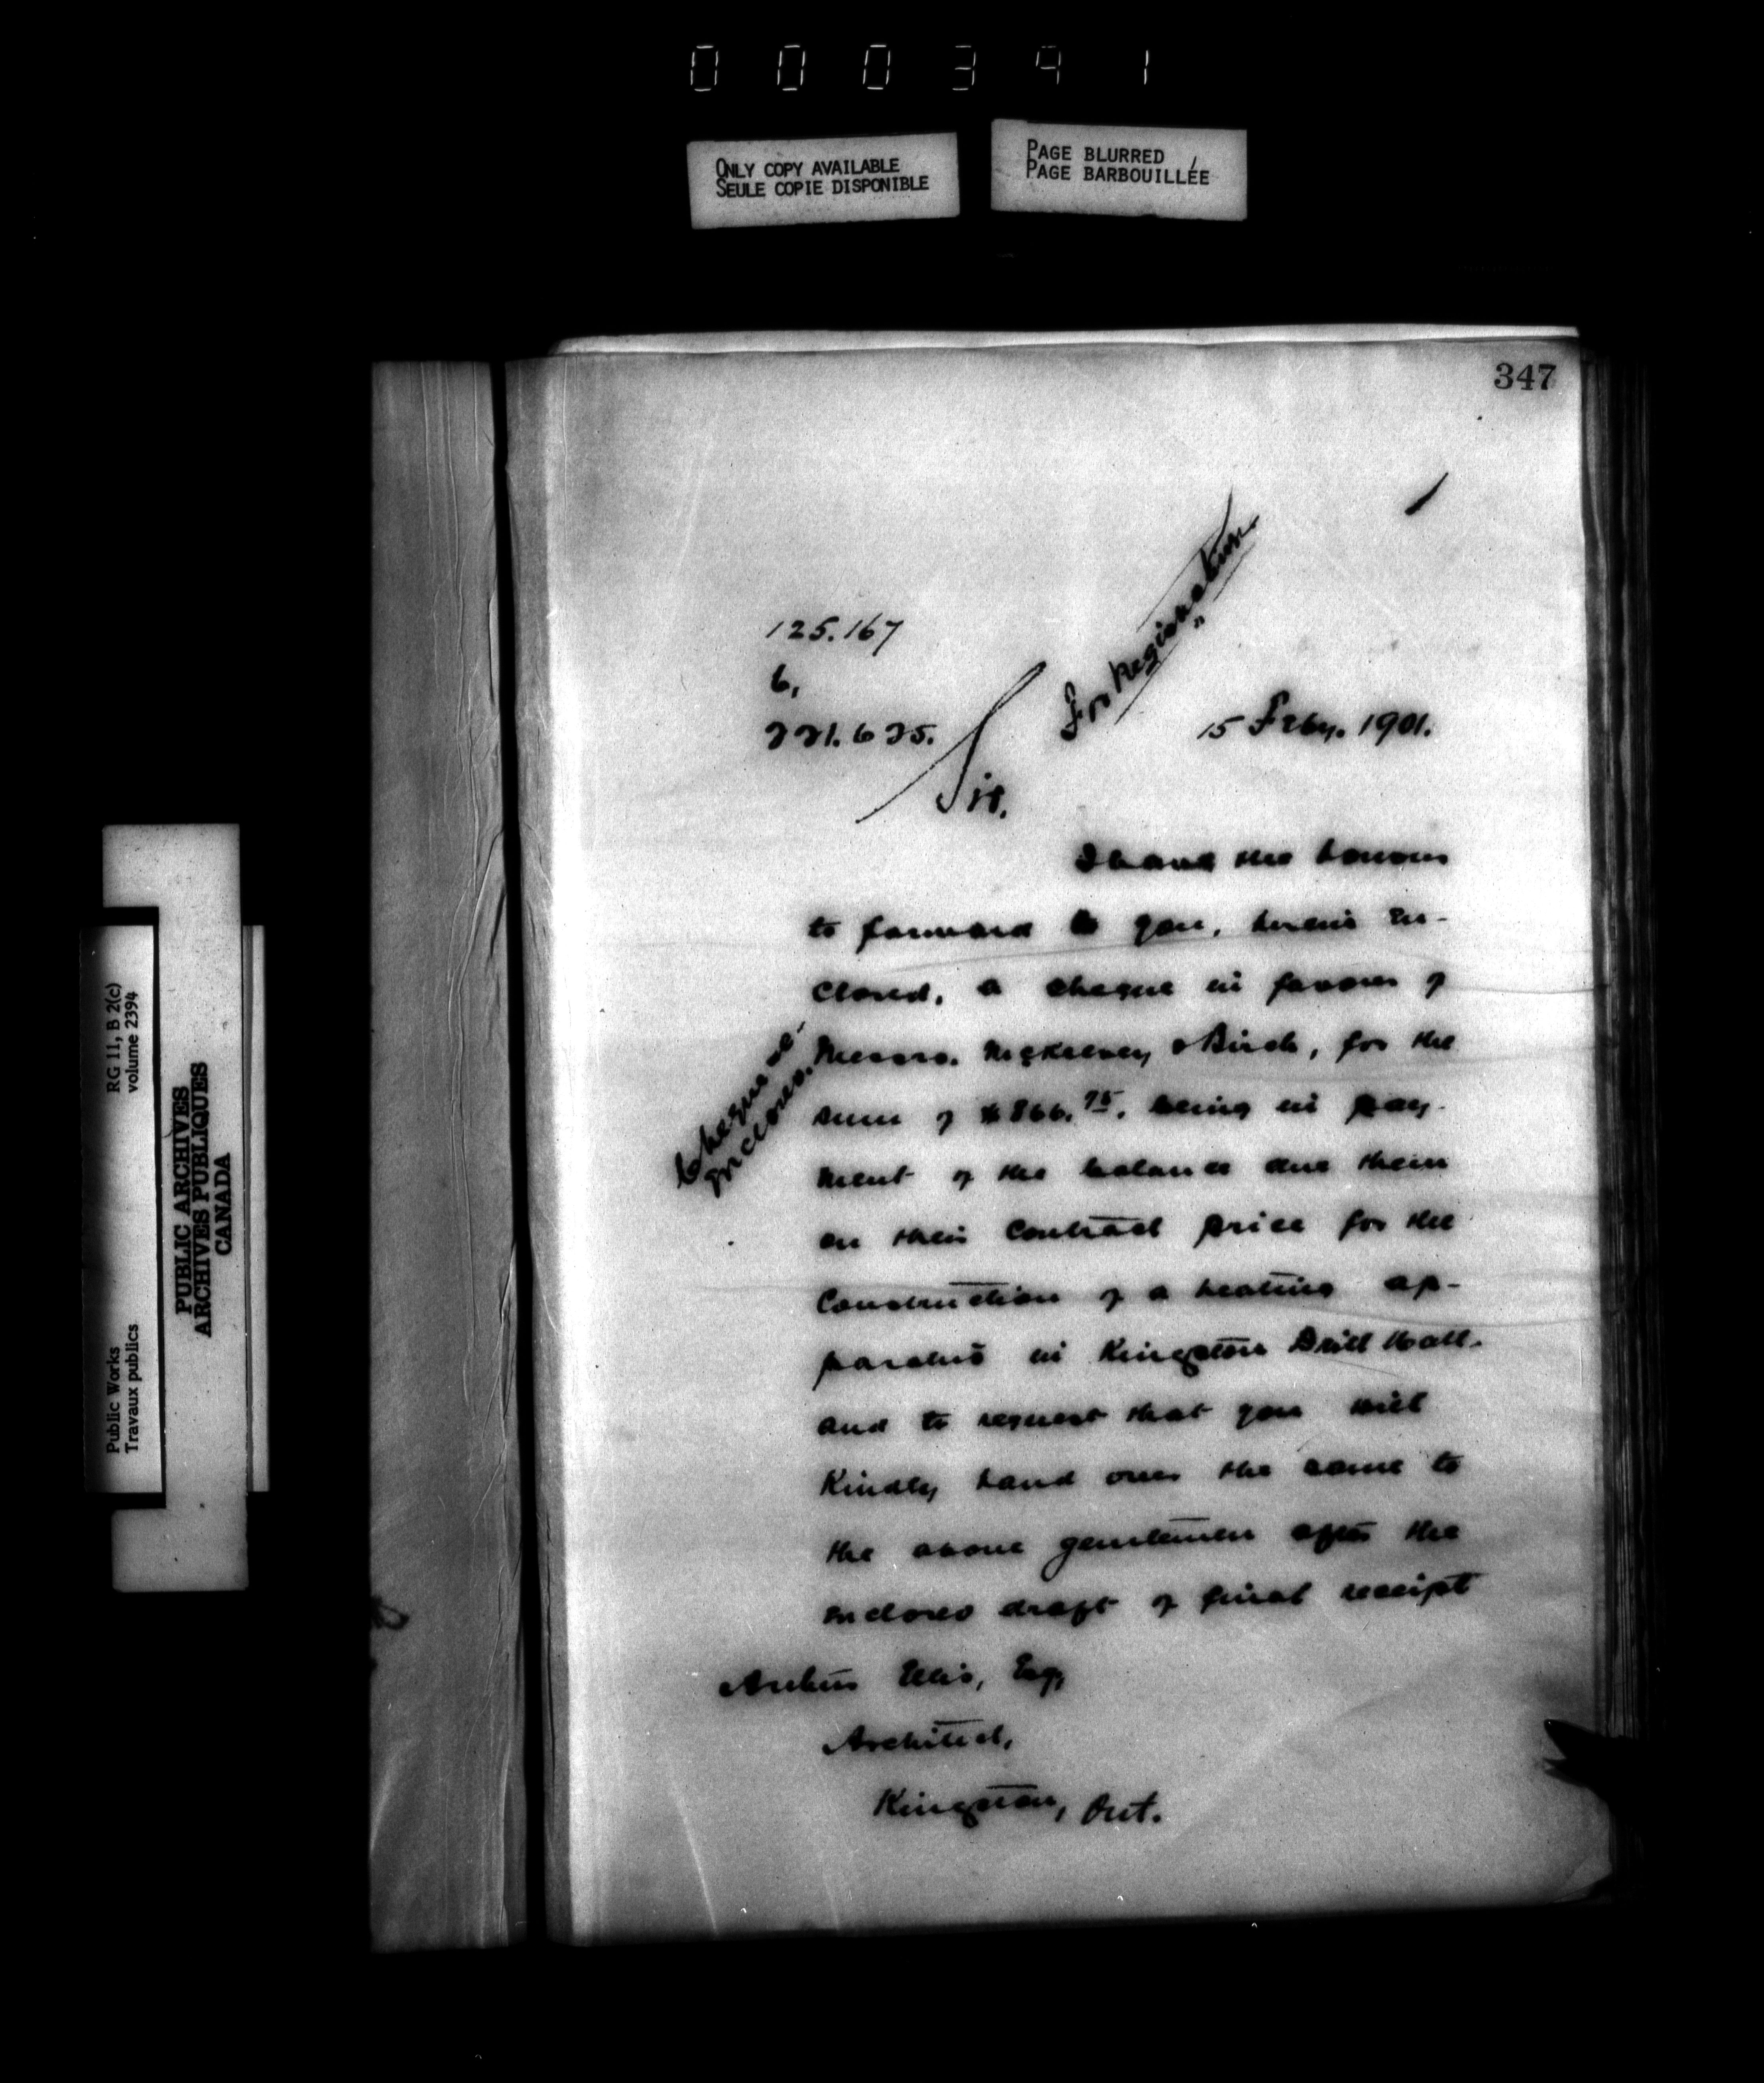 000391
ONLY COPY AVAILABLE
SEULE COPIE DISPONIBLE
PAGE BLURRED
PAGE BARBOUILLÉE
347
For Registration
125.167
6,
221.625.
15 Feby. 1901.
Sir,
I have the honour
to forward to you, herein en-
closed, a cheque in favour of
Messrs. McKelvey & Birch, for the
sum of $866.75, being in pay-
ment of the balance due them
on their contract price for the
construction of a heating ap-
paratus in Kingston Drill Hall.
and to request that you will
kindly hand over the same to
the above gentlemen after the
enclosed draft of final receipt
Cheque
enclosed.
Arthur Ellis, Esq,
Architect,
Kingston, Ont.
Public Works
Travaux publics
RG 11, B 2(c)
volume 2394
PUBLIC ARCHIVES
ARCHIVES PUBLIQUES
CANADA